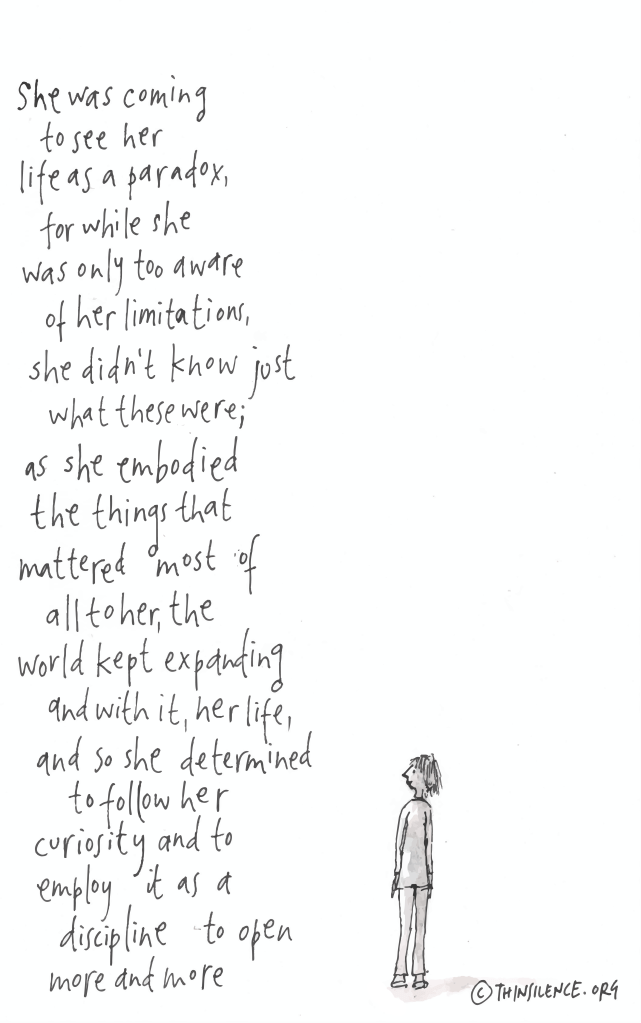 She was coming
to see her
life as a paradox,
for while she
was only too aware
of her limitations,
she didn't know just
what these were;
as she embodied
the things that
mattered most of
all to her, the
world kept expanding
and with it, her life,
and so she determined
to follow her
curiosity and to
employ it as a
discipline to open
more and more
© THINSILENCE.ORG